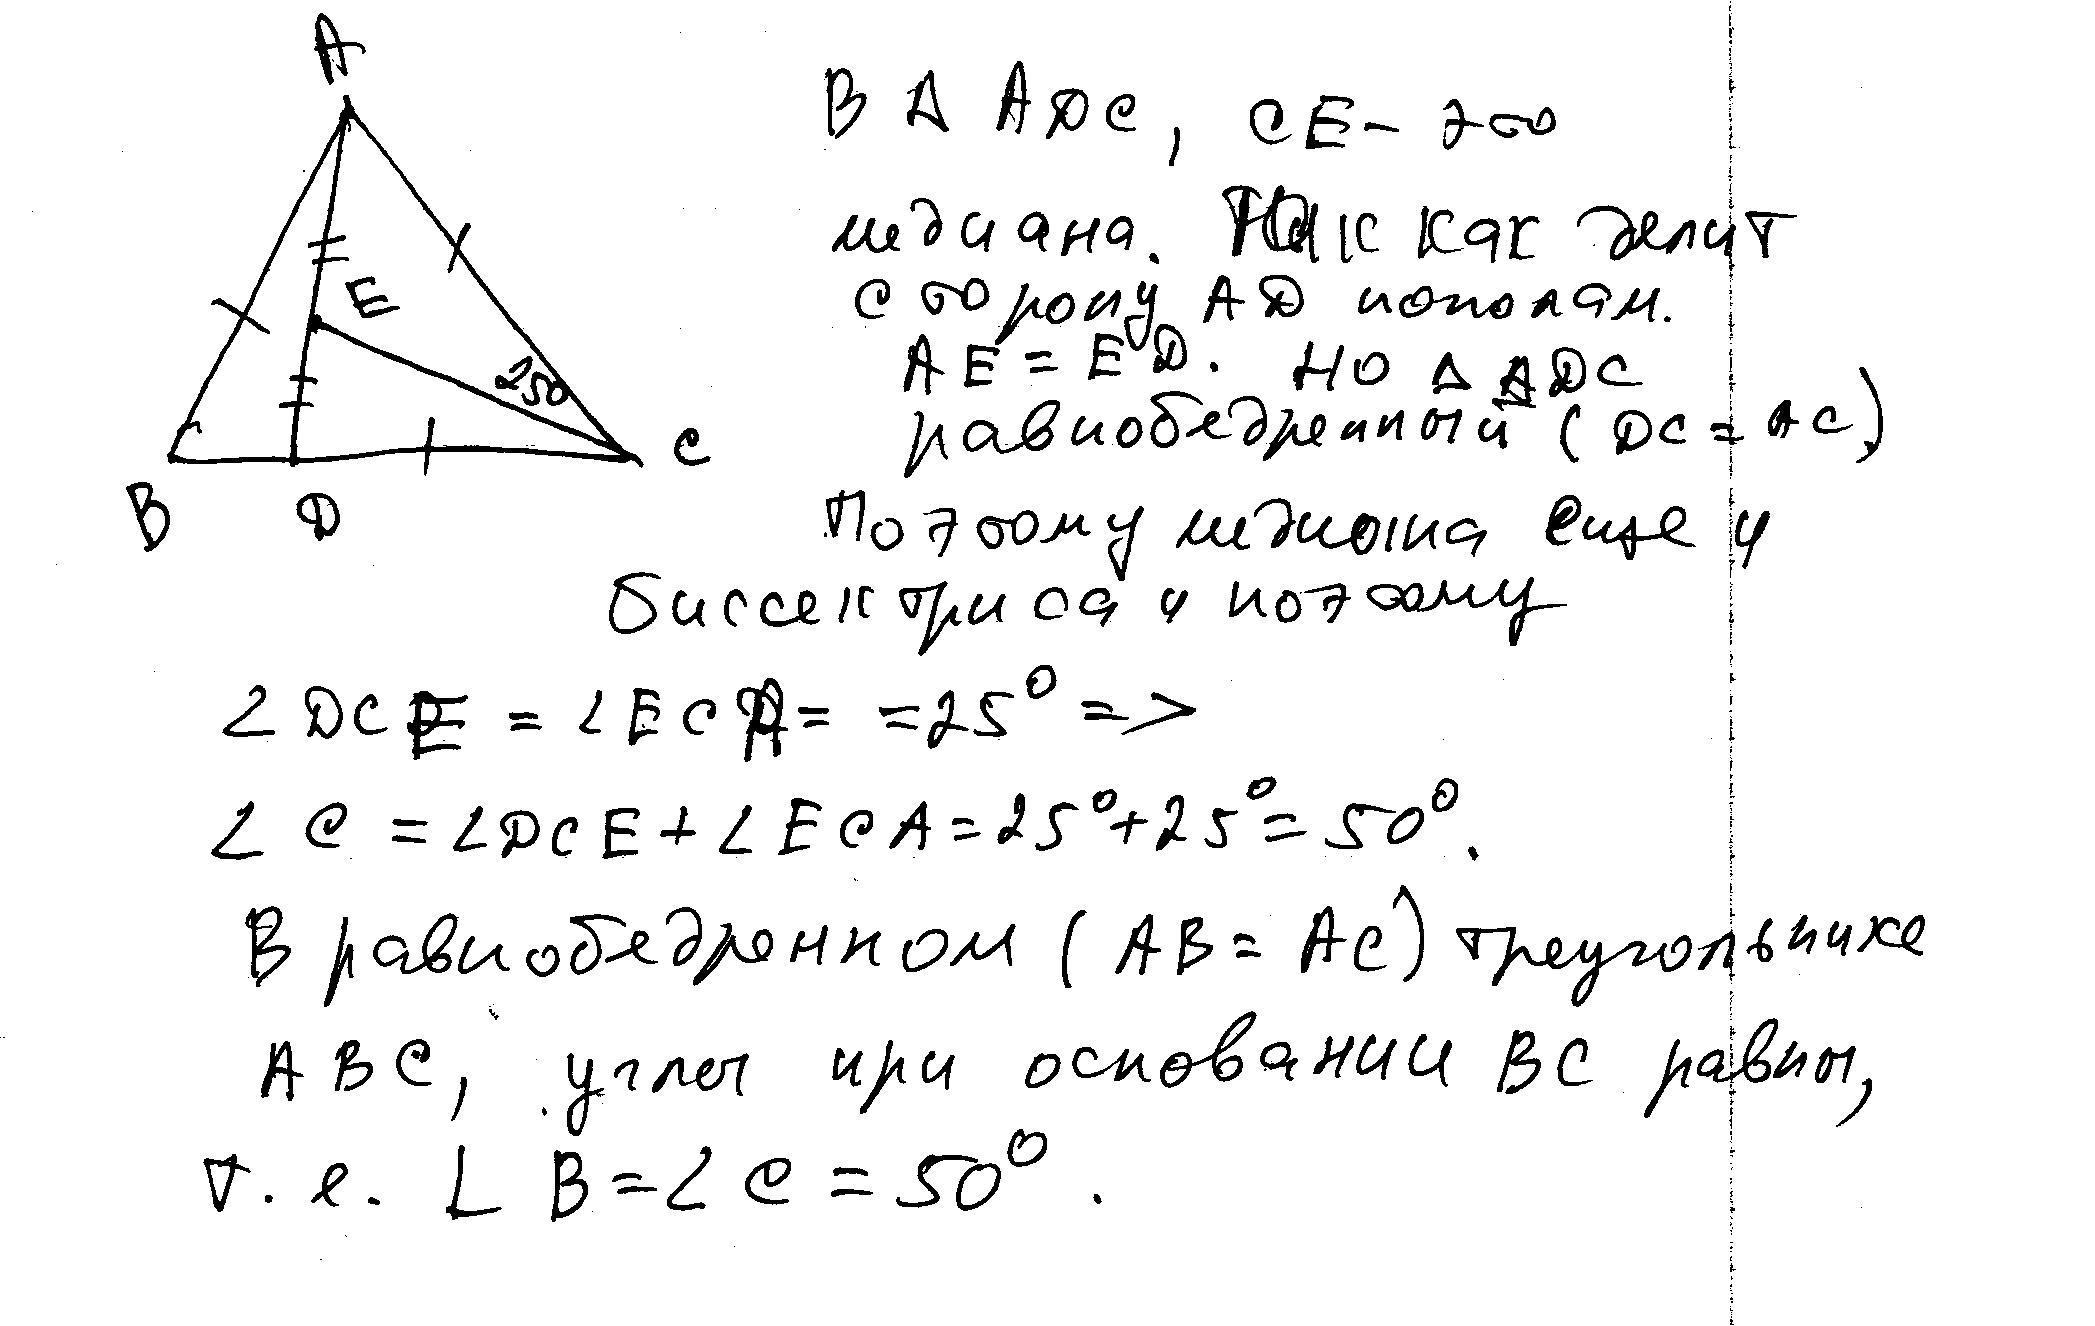 A
E
25°
B
D
C
В Δ ADC, CE - это
медиана. Так как делит
сторону AD пополам.
AE = ED. Но Δ ADC
равнобедренный (DC = AC)
Поэтому медиана еще и
биссектриса и поэтому
∠DCE = ∠ECA = = 25° =>
∠C = ∠DCE + ∠ECA = 25° + 25° = 50°.
В равнобедренном (AB = AC) треугольнике
ABC, углы при основании BC равны,
т.е. ∠B = ∠C = 50°.